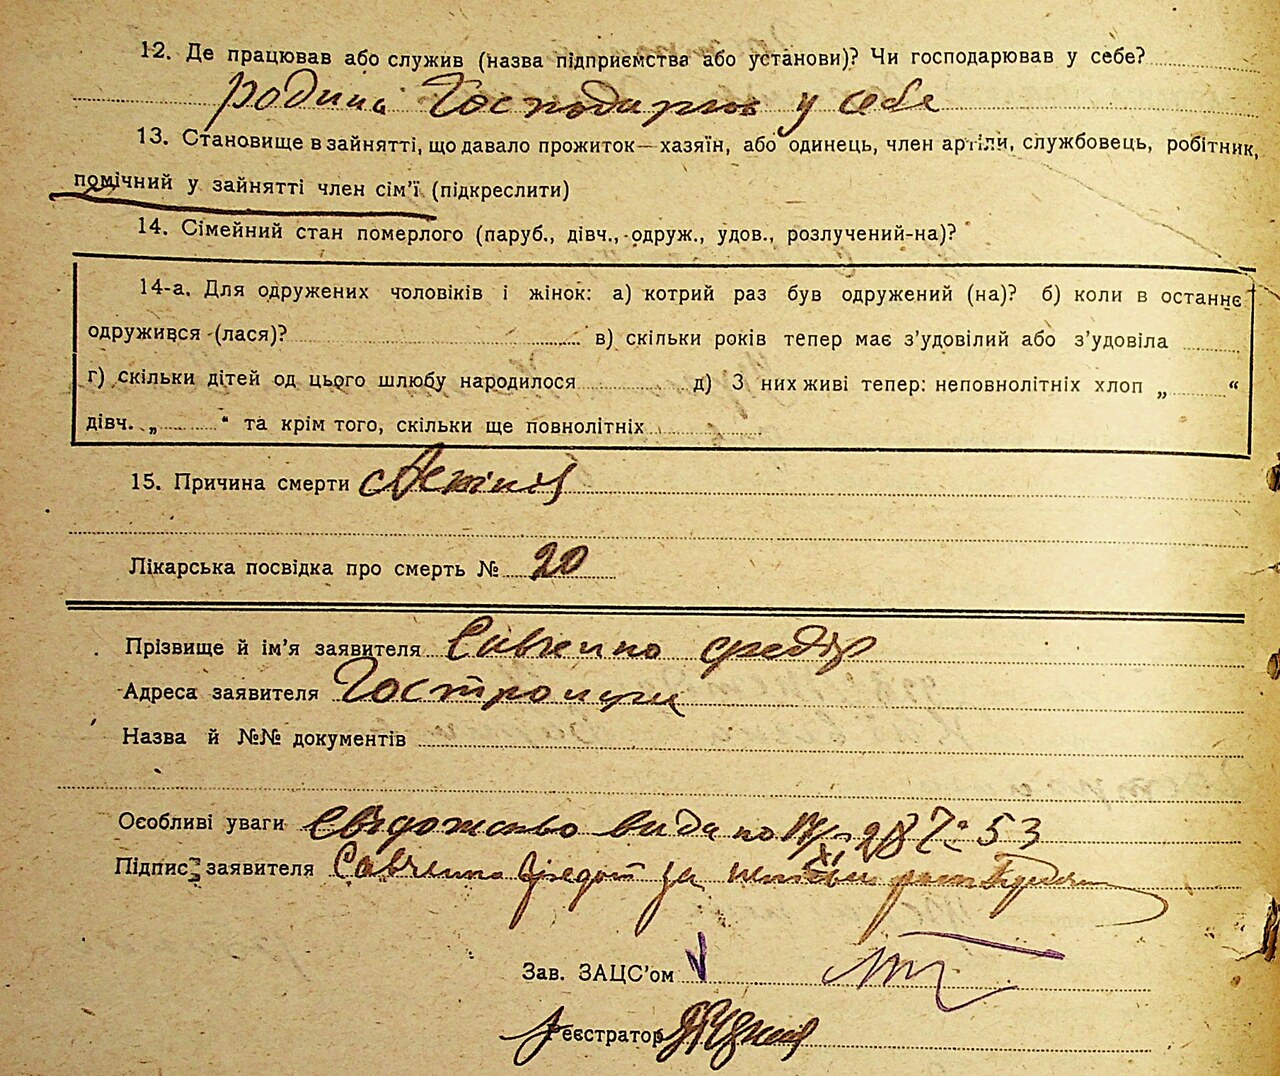 12. Де працював або служив (назва підприємства або установи)? Чи господарював у себе?
родина Господарюв у себе
13. Становище в зайнятті, що давало прожиток—хазяїн, або одинець, член артіли, службовець, робітник,
помічний у зайнятті член сім’ї (підкреслити)
14. Сімейний стан померлого (паруб., дівч., одруж., удов., розлучений-на)?
14-а. Для одружених чоловіків і жінок: а) котрий раз був одружений (на)? б) коли в останнє
одружився (лася)? в) скільки років тепер має з’удовілий або з’удовіла
г) скільки дітей од цього шлюбу народилося д) З них живі тепер: неповнолітніх хлоп „ “
дівч. „ “ та крім того, скільки ще повнолітніх
15. Причина смерти
Лікарська посвідка про смерть № 20
Прізвище й ім’я заявителя Савченко Федір
Адреса заявителя
Назва й №№ документів
Особливі уваги 53
Підпис заявителя Савченко
Зав. ЗАЦС’ом
Реєстратор